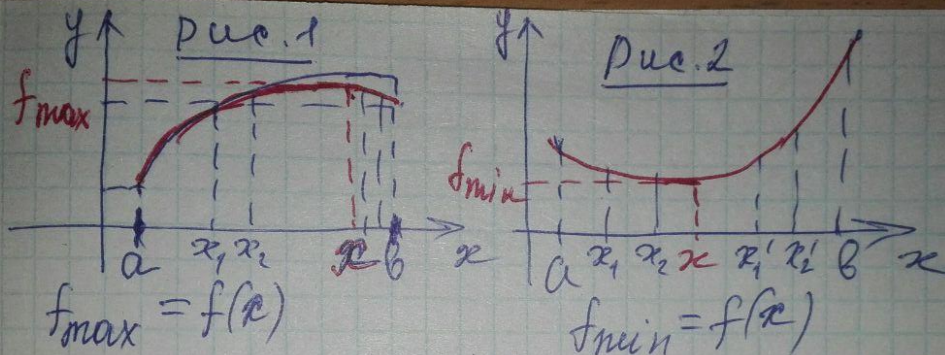 y Рис. 1
f max
a x₁ x₂ x b x
f max = f(x)
y Рис. 2
f min
a x₁ x₂ x x₁' x₂' b x
f min = f(x)